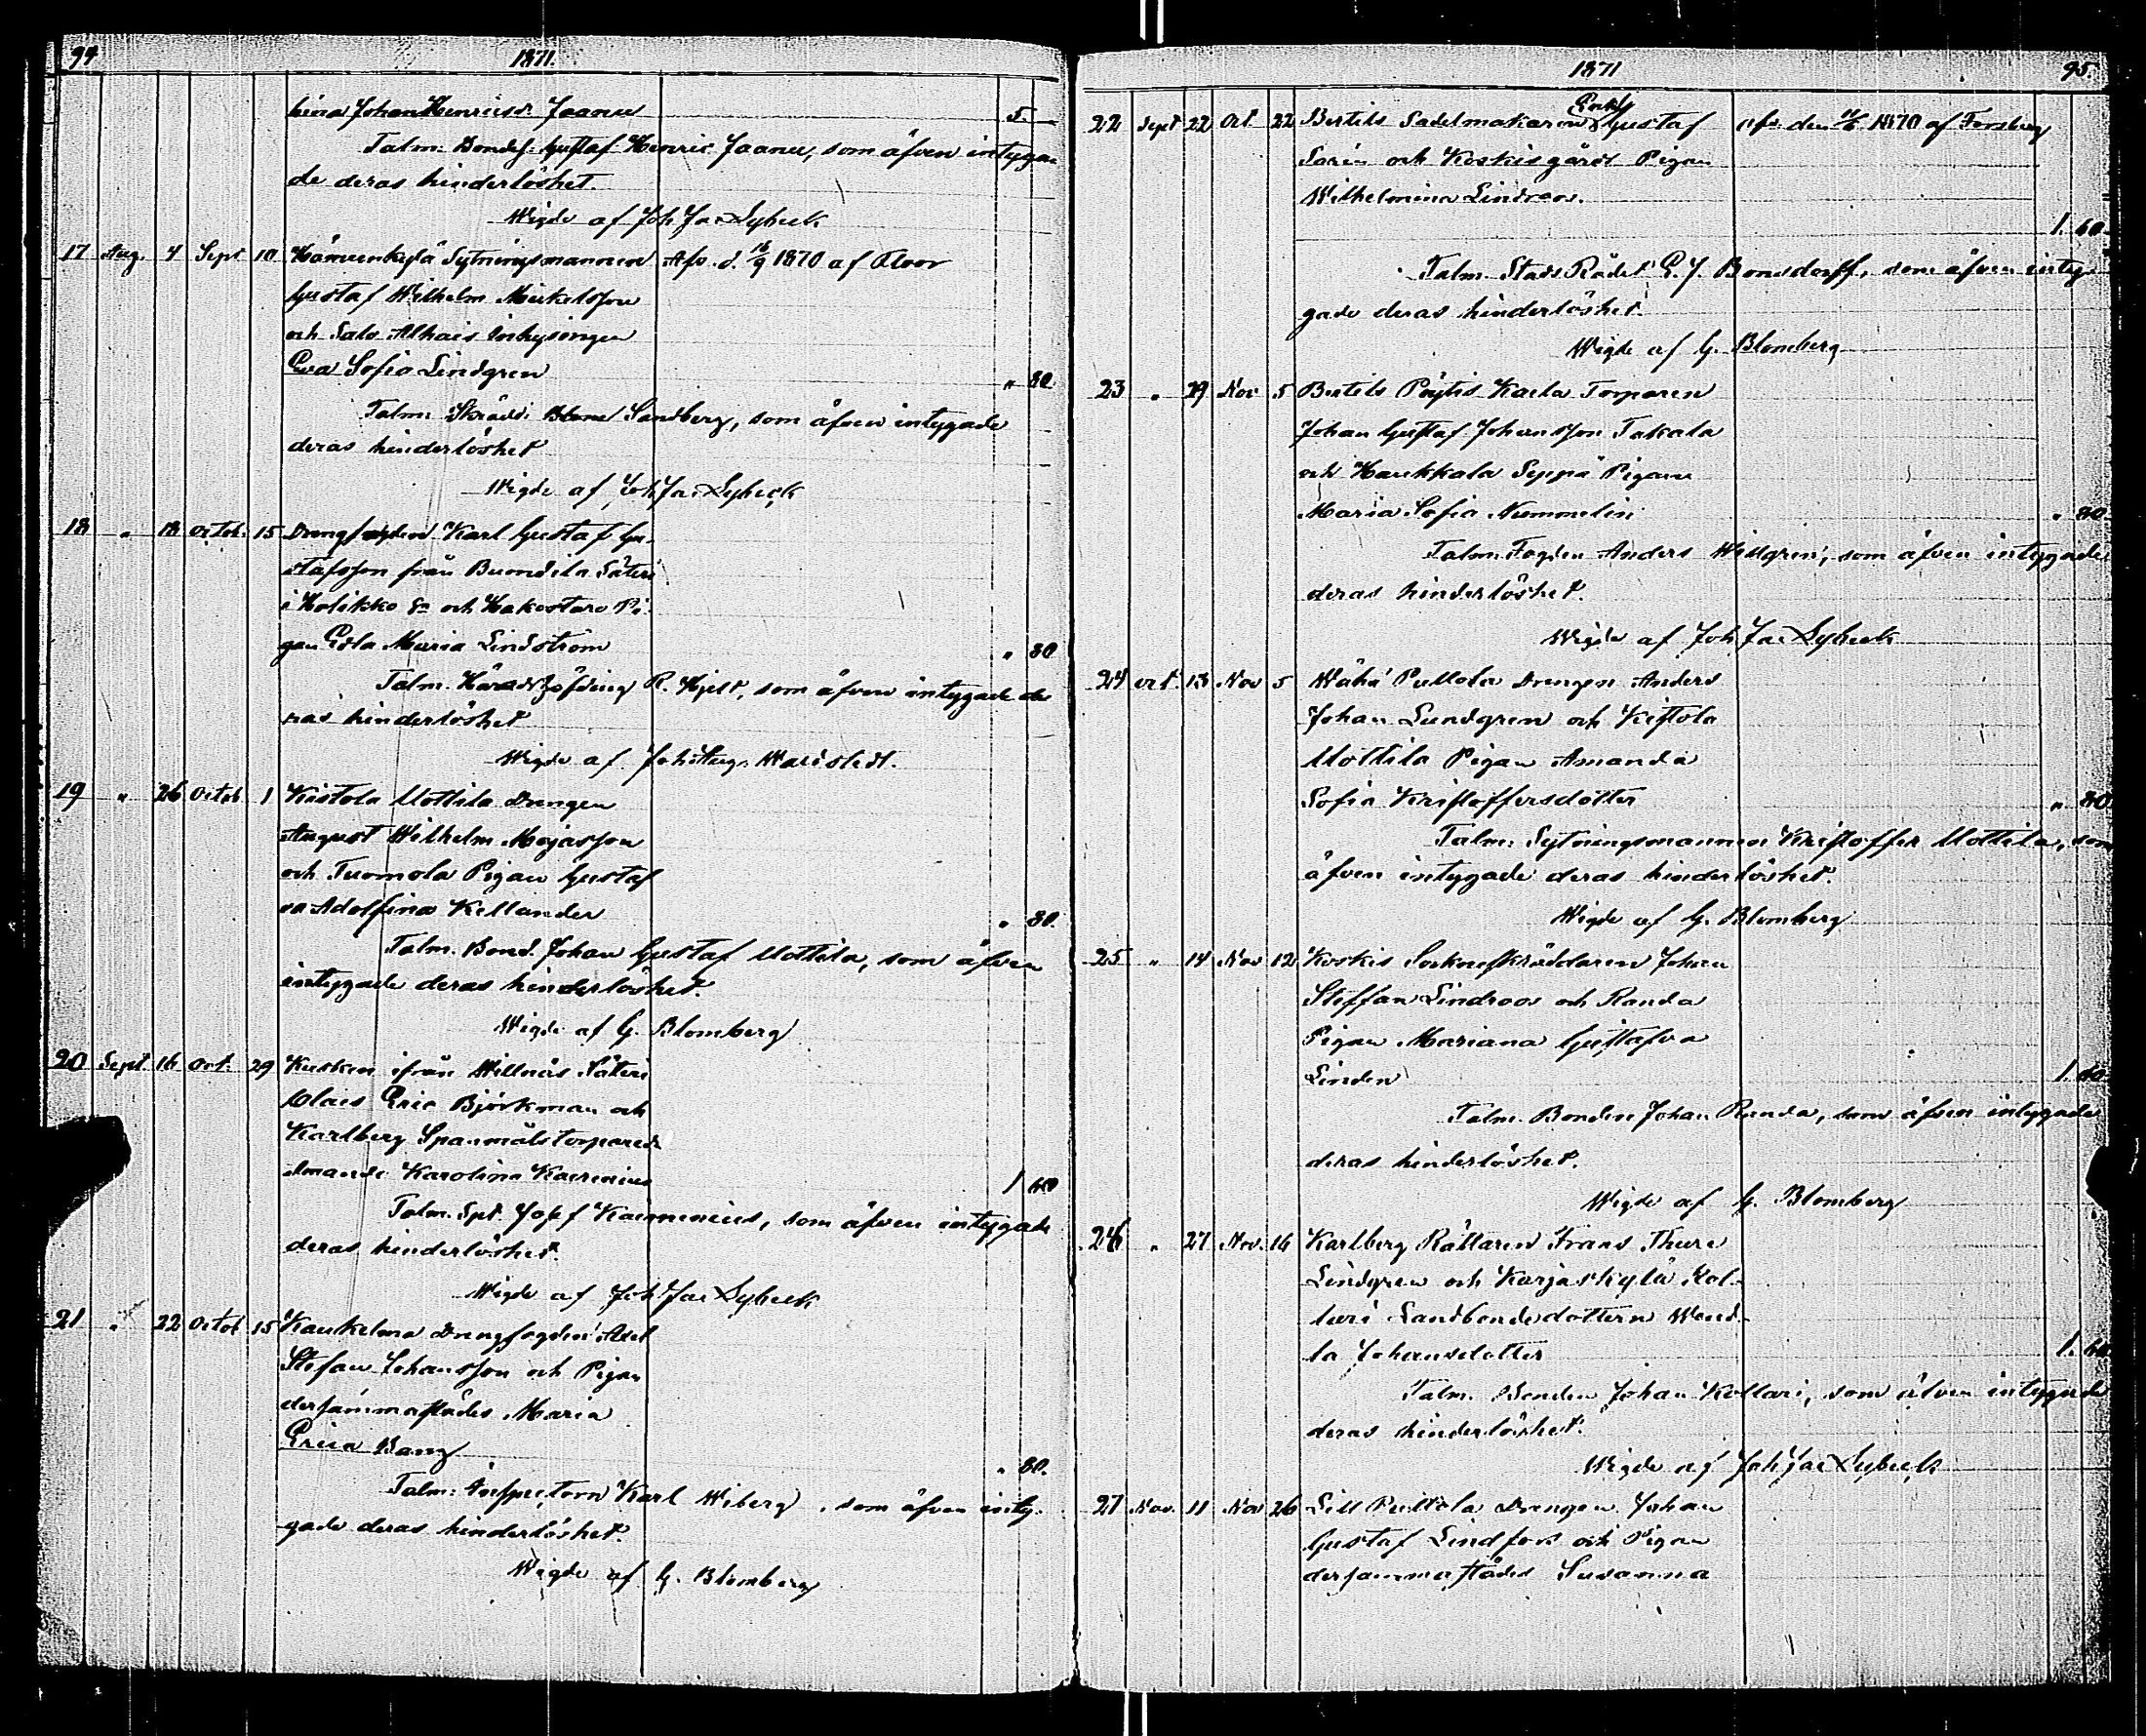 94 1871.
bina Johan Henricsdr Jaanu 5.
Talm. Bondes. Gustaf Henric Jaanu, som äfven intyga
de deras hinderlöshet.
Wigde af Joh Jac Lybeck
17 Aug. 4 Sept 10 Hämenkylä Sytningsmannen Afv. d. 18/9 1870 af Floor
Gustaf Wilhelm Mickelsson
och Salo Alhais Inhysingen
Eva Sofia Lindgren " 80.
Talm. Skrädd. Sandberg, som äfven intygade
deras hinderlöshet
Wigde af Joh Jac Lybeck
18 " 18 Octob. 15 Drengfogden Karl Gustaf Gu-
stafsson från Säteri
i Halikko Sn och Hakostaro Pi-
gan Edla Maria Lindström " 80
Talm. Häradshöfding R. Hjelt, som äfven intygade de
ras hinderlöshet
Wigde af Joh Aug. Waristedt.
19 " 26 Octob 1 Kistola Uottila Drengen
August Wilhelm Majasson
och Tuomola Pigan Gustaf
va Adolfina Kellander " 80.
Talm. Bond. Johan Gustaf Uottila, som äfven
intygade deras hinderlöshet.
Wigde af G. Blomberg
20 Sept. 16 Oct. 29 Kusken ifrån Willnäs Säteri
Claes Eric Björkman och
Karlberg Spanmålstorparedr
Amanda Karolina Kaermenius 1 60
Talm. Spt. Josef Kaermenius, som äfven intygade
deras hinderlöshet.
Wigde af Joh Jac Lybeck
21 " 22 Octob 15 Kaukelma Drengfogden Axel
Stefan Johansson och Pigan
dersammastädes Maria
Erica Bang " 80.
Talm: Inspectorn Karl Wiberg, som äfven inty-
gade deras hinderlöshet.
Wigde af G. Blomberg
1871 95.
22 Sept 22 Oct 22 Bertils Sadelmakaren Enkl. Gustaf afv. den 1870 af Forsberg
Sarin och Koskisgård Pigan
Wilhelmina Lindroos.
1. 60.
Talm. Stads Rådet E. J. Bonsdorff, som äfven inty-
gade deras hinderlöshet.
Wigde af G. Blomberg
23 " 29 Nov 5 Bertils Pöytis Kaela Torparen
Johan Gustaf Johansson Takala
och Haukkala Seppä Pigan
Maria Sofia Nummelin " 80
Talm. Fogden Anders Widgren, som äfven intygade
deras hinderlöshet.
Wigde af Joh Jac Lybeck
24 Oct. 13 Nov 5 Wähä Pullola Drengen Anders
Johan Lundgren och Kistola
Uottila Pigan Amanda
Sofia Kristoffersdotter " 80
Talm. Sytningsmannen Kristoffer Uottila, som
äfven intygade deras hinderlöshet.
Wigde af G. Blomberg
25 " 14 Nov 12 Koskis Sockneskräddaren Johan
Steffan Lindroos och Randa
Pigan Mariana Gustafva
Linden 1. 60
Talm. Bonden Johan Randa, som äfven intygade
deras hinderlöshet.
Wigde af G. Blomberg
26 " 27 Nov. 16 Karlberg Rättaren Frans Thure
Lindgren och Karjaskylä Kol-
lari Landbondedottern Wend-
la Johansdotter 1. 60
Talm. Bonden Johan Kollari, som äfven intygade
deras hinderlöshet.
Wigde af Joh Jac Lybeck
27 Nov. 11 Nov 26 Lill Pullola Drengen Johan
Gustaf Lindfors och Pigan
dersammastädes Susanna